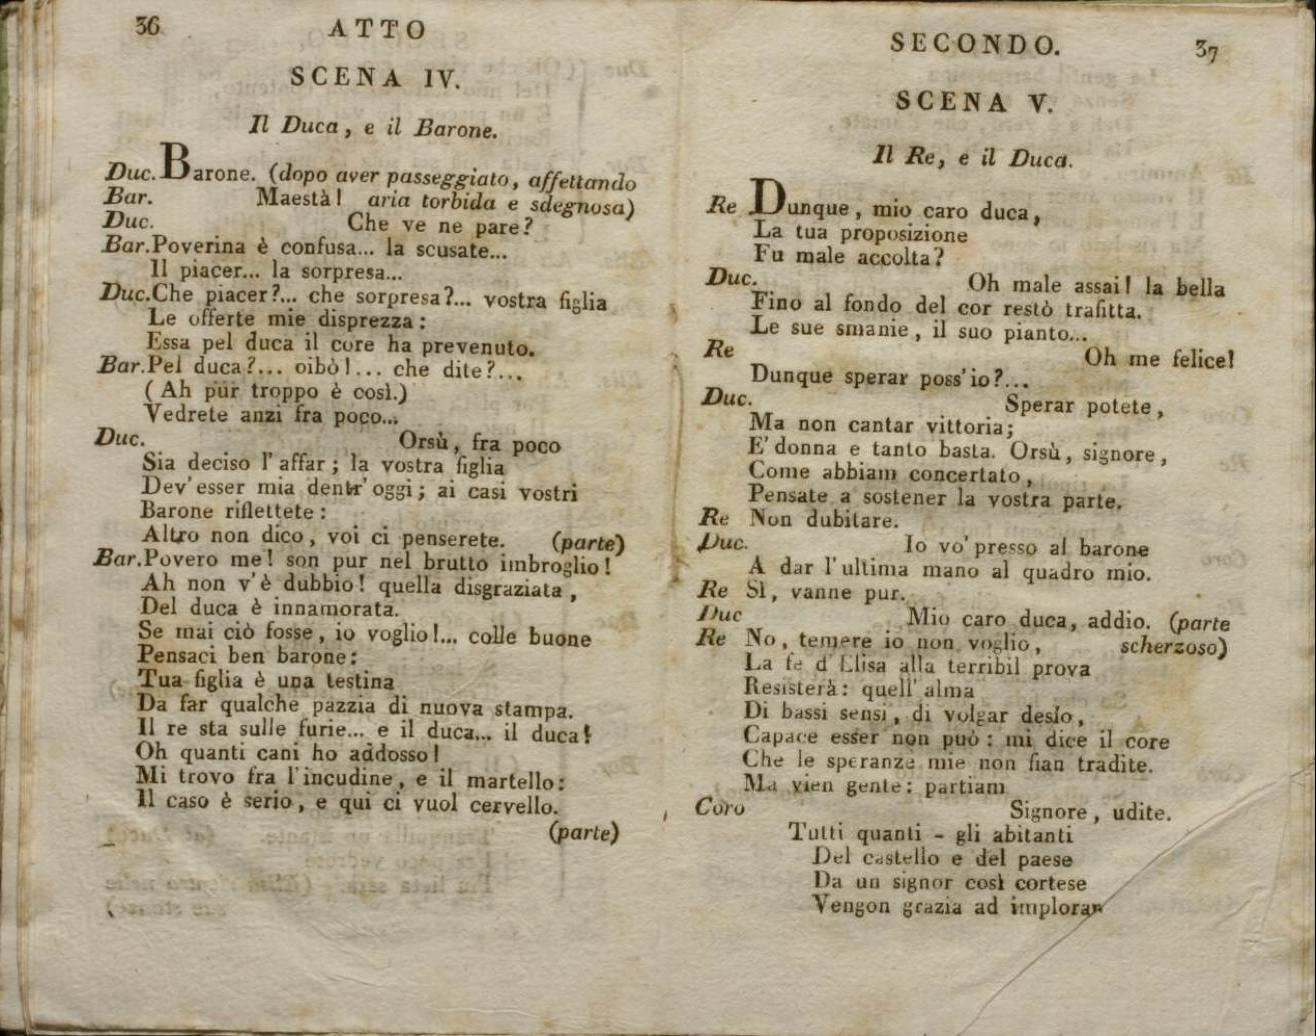 36
ATTO
SCENA IV.
Il Duca, e il Barone.
Duc. Barone. (dopo aver passeggiato, affettando
Bar. Maestà! aria torbida e sdegnosa)
Duc. Che ve ne pare?
Bar. Poverina è confusa... la scusate...
Il piacer... la sorpresa...
Duc. Che piacer?... che sorpresa?... vostra figlia
Le offerte mie disprezza:
Essa pel duca il core ha prevenuto.
Bar. Pel duca?... oibò!... che dite?...
(Ah pur troppo è così.)
Vedrete anzi fra poco...
Duc. Orsù, fra poco
Sia deciso l'affar; la vostra figlia
Dev'esser mia dentr'oggi; ai casi vostri
Barone riflettete:
Altro non dico, voi ci penserete. (parte)
Bar. Povero me! son pur nel brutto imbroglio!
Ah non v'è dubbio! quella disgraziata,
Del duca è innamorata.
Se mai ciò fosse, io voglio!... colle buone
Pensaci ben barone:
Tua figlia è una testina
Da far qualche pazzia di nuova stampa.
Il re sta sulle furie... e il duca... il duca!
Oh quanti cani ho addosso!
Mi trovo fra l'incudine, e il martello:
Il caso è serio, e qui ci vuol cervello.
(parte)
SECONDO.
37
SCENA V.
Il Re, e il Duca.
Re Dunque, mio caro duca,
La tua proposizione
Fu male accolta?
Duc. Oh male assai! la bella
Fino al fondo del cor restò trafitta.
Le sue smanie, il suo pianto...
Re Oh me felice!
Dunque sperar poss'io?...
Duc. Sperar potete,
Ma non cantar vittoria;
E' donna e tanto basta. Orsù, signore,
Come abbiam concertato,
Pensate a sostener la vostra parte.
Re Non dubitare.
Duc. Io vo' presso al barone
A dar l'ultima mano al quadro mio.
Re Sì, vanne pur.
Duc Mio caro duca, addio. (parte
Re No, temere io non voglio, scherzoso)
La fe d'Elisa alla terribil prova
Resisterà: quell'alma
Di bassi sensi, di volgar desìo,
Capace esser non può: mi dice il core
Che le speranze mie non fian tradite.
Ma vien gente: partiam
Coro Signore, udite.
Tutti quanti - gli abitanti
Del castello e del paese
Da un signor così cortese
Vengon grazia ad implorar